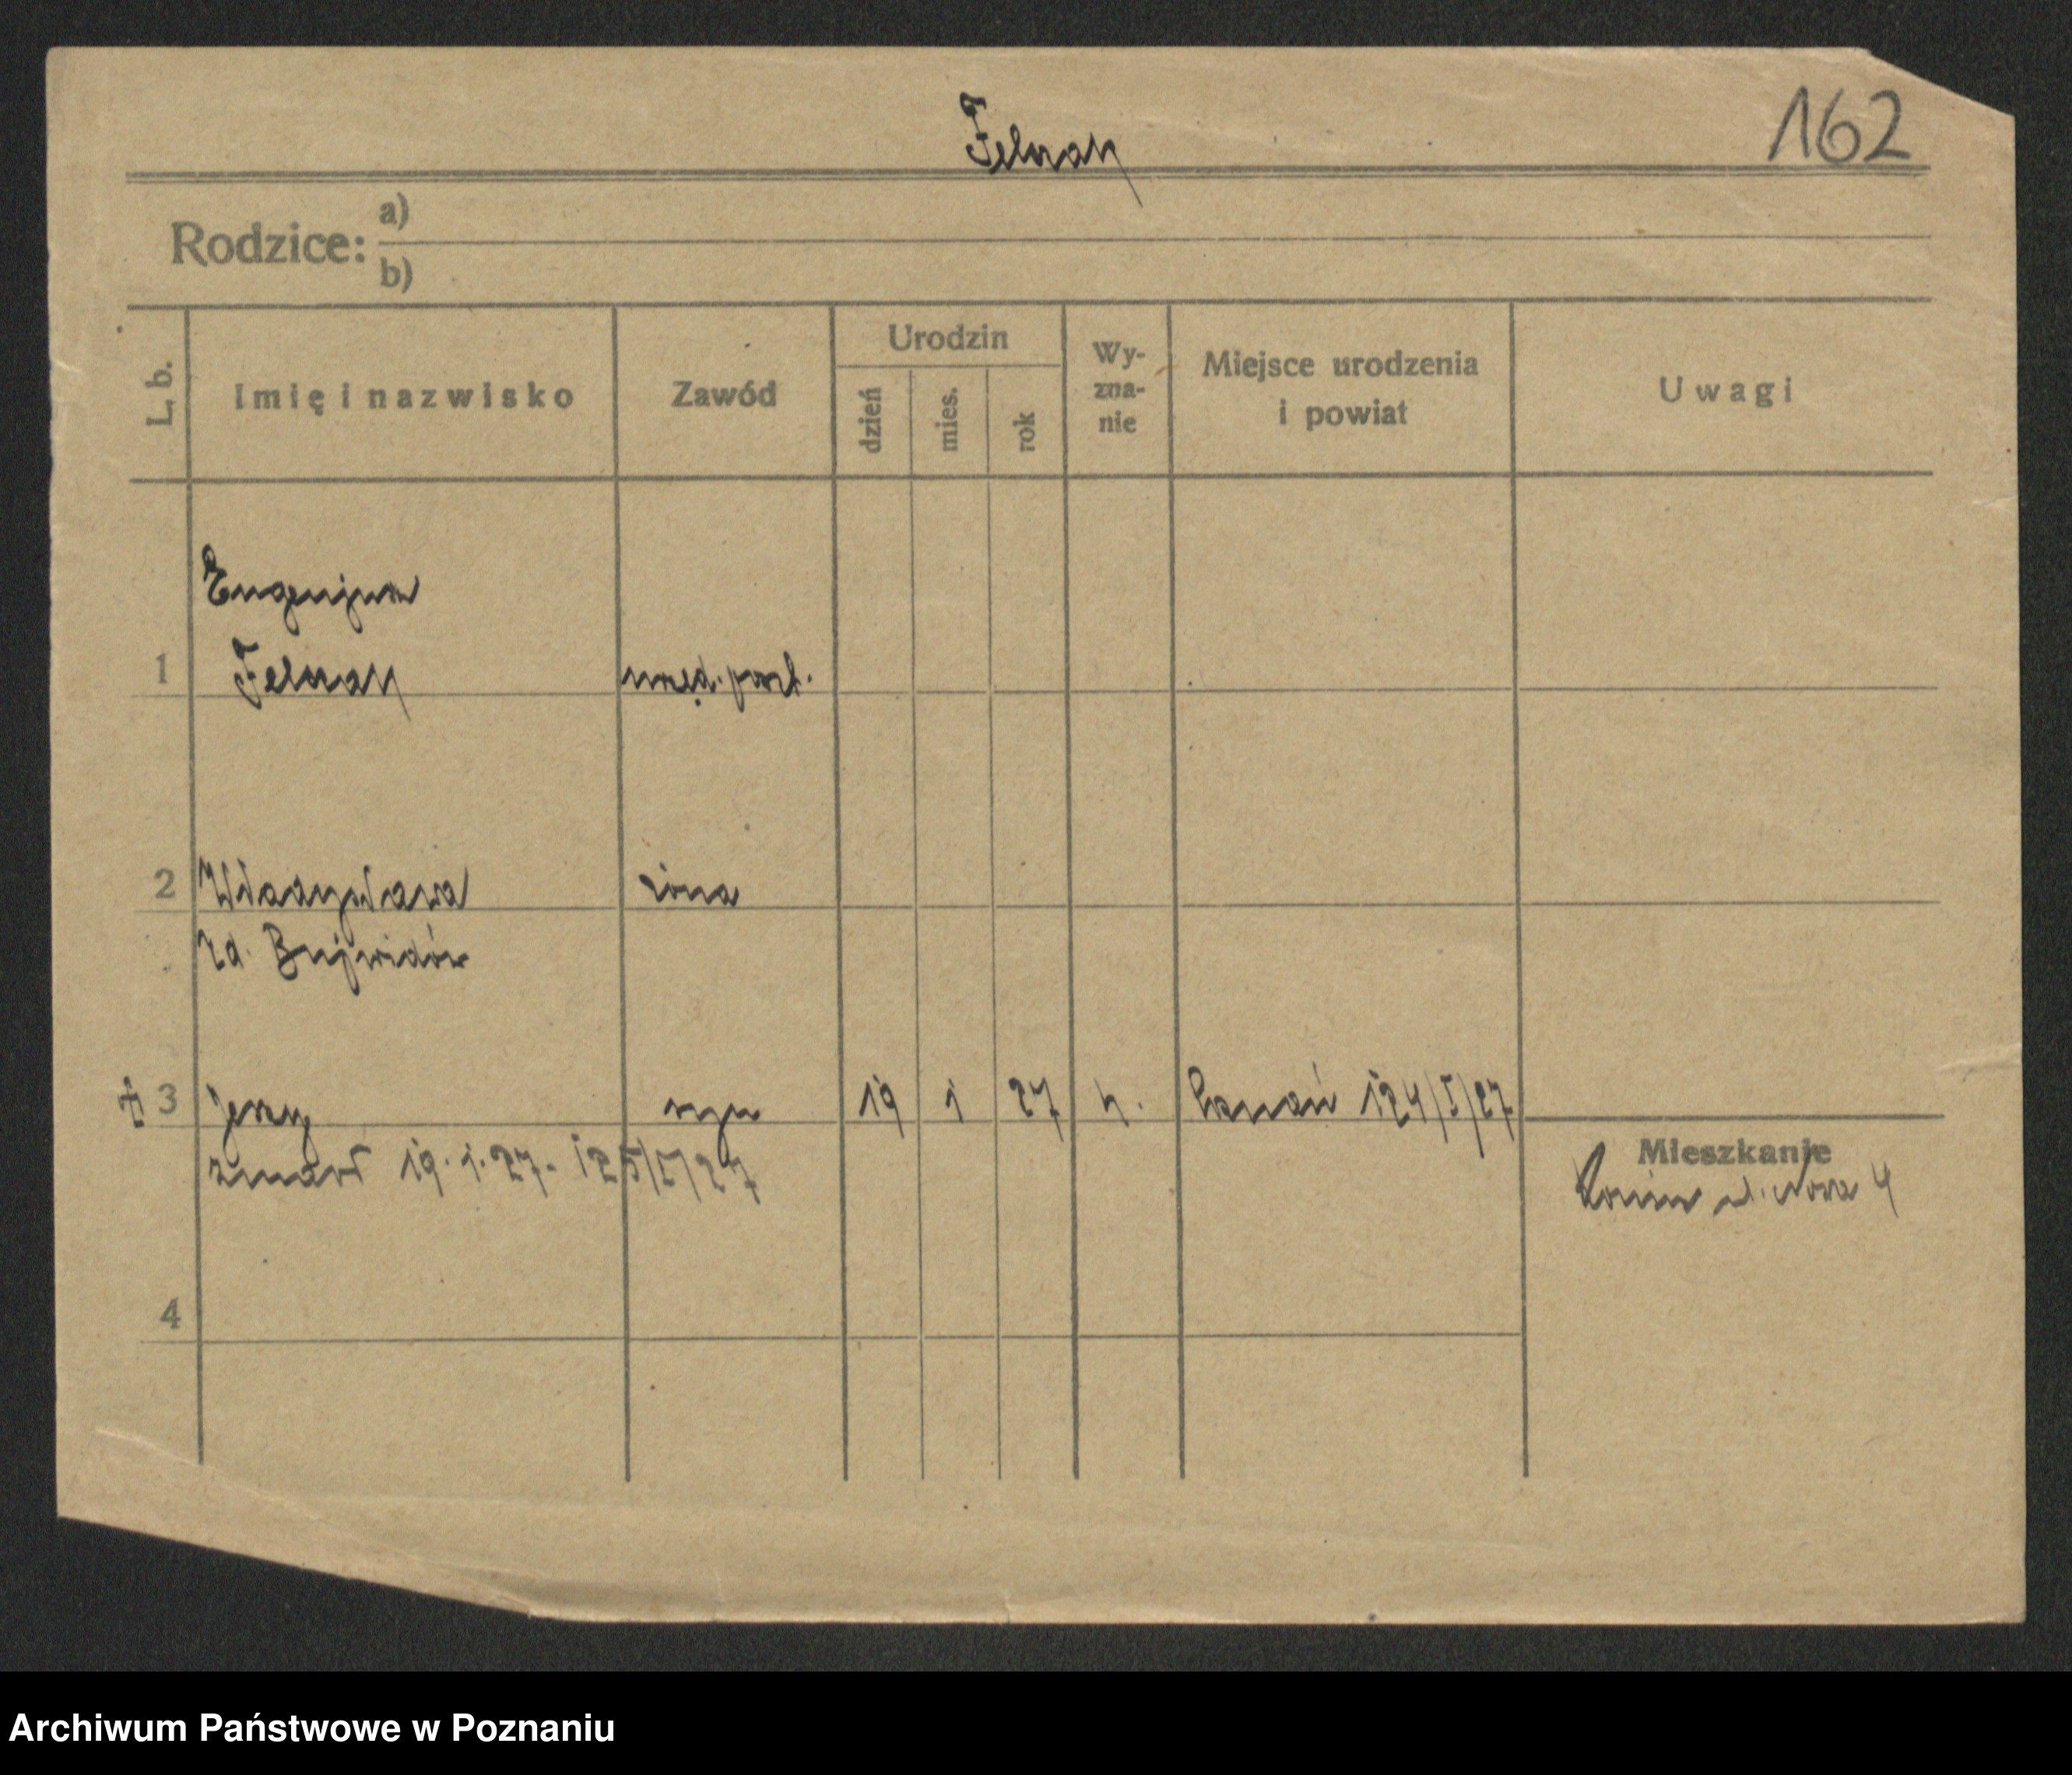 162
Rodzice: a)
b)
L. b. Imię i nazwisko Zawód Urodzin dzień mies. rok Wy-zna-nie Miejsce urodzenia i powiat Uwagi
Eugenjusz
1 urzęd. poczt.
2 Władysława żona
zd. Bujwidów
3 Jerzy syn 19 1 27 k. Poznań 124/I/27
zmarł 19.1.27. 125/I/27
Mieszkanie
ul. Nowa 4
4
Archiwum Państwowe w Poznaniu